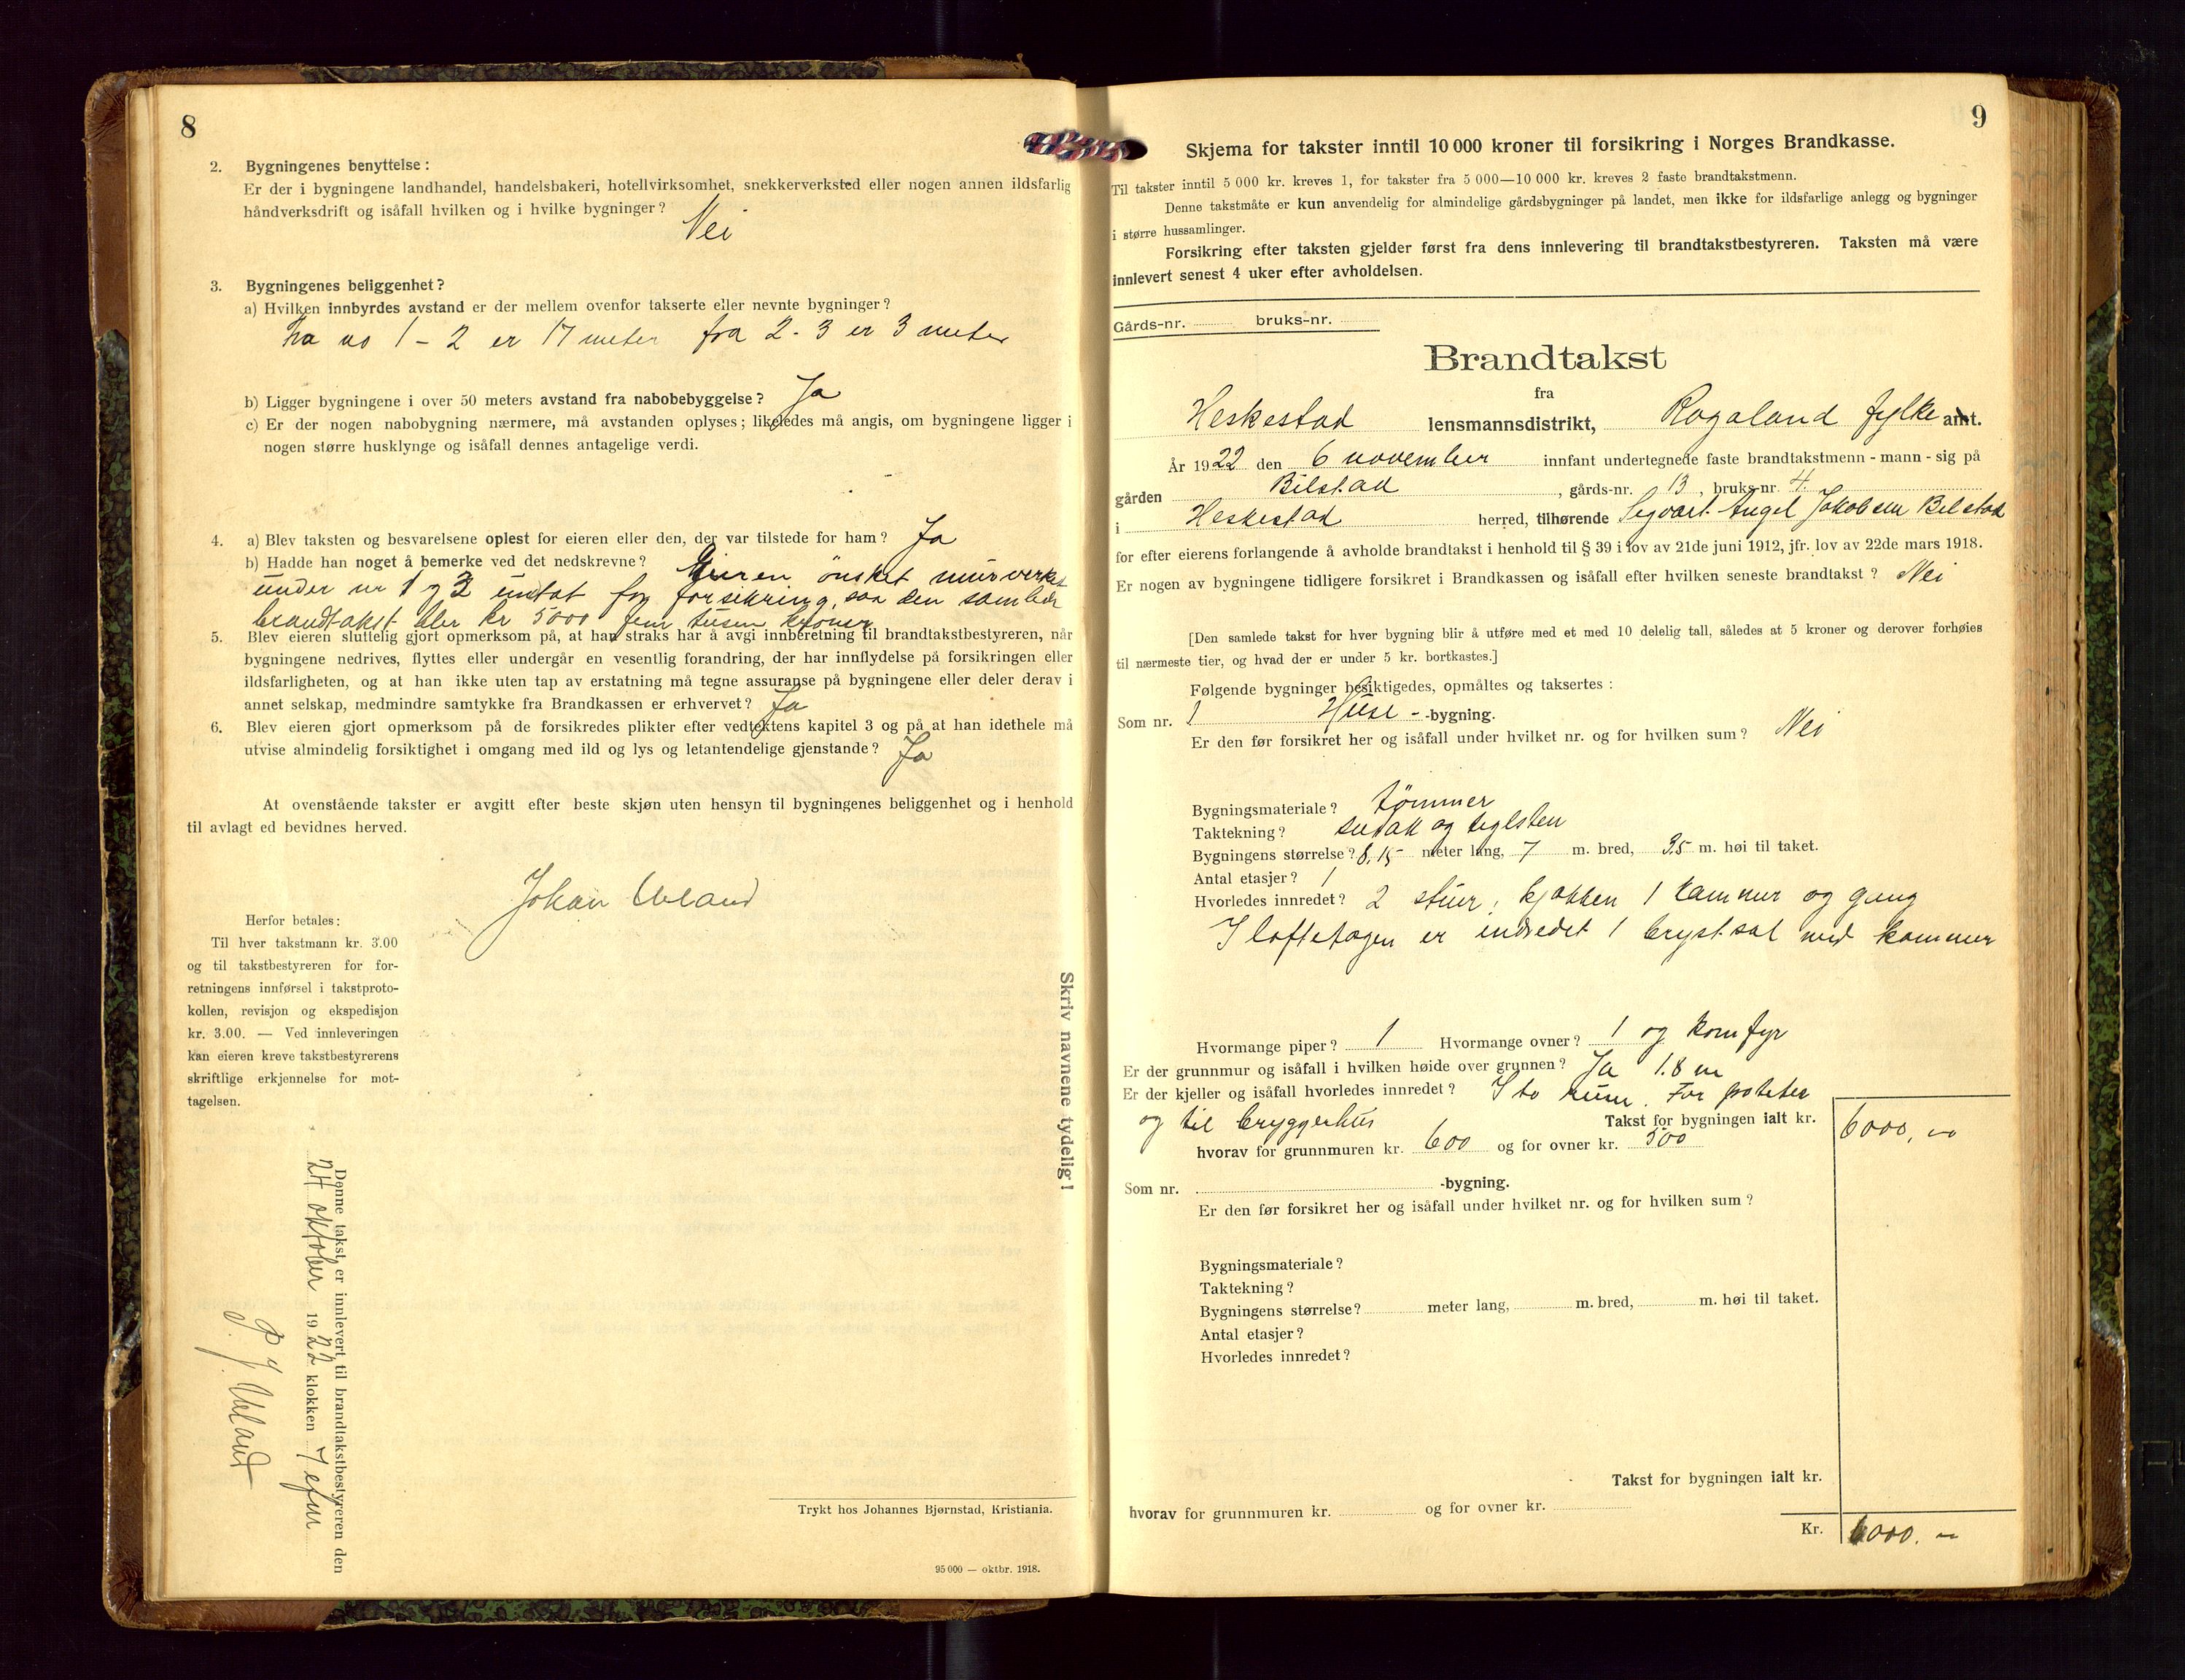 8
2. Bygningenes benyttelse:
Er der i bygningene landhandel, handelsbakeri, hotellvirksomhet, snekkerverksted eller nogen annen ildsfarlig
håndverksdrift og isåfall hvilken og i hvilke bygninger?
Nei
3. Bygningenes beliggenhet?
a) Hvilken innbyrdes avstand er der mellem ovenfor takserte eller nevnte bygninger?
Fra no 1 - 2 er 17 meter fra 2 - 3 er 3 meter
b) Ligger bygningene i over 50 meters avstand fra nabobebyggelse? Ja
c) Er der nogen nabobygning nærmere, må avstanden oplyses; likeledes må angis, om bygningene ligger i
nogen større husklynge og isåfall dennes antagelige verdi.
4. a) Blev taksten og besvarelsene oplest for eieren eller den, der var tilstede for ham? Ja
b) Hadde han noget å bemerke ved det nedskrevne? Eieren önsket murverket
under nr 1 og 3 untat for forsekring, saa den samlede
brandtakst bler kr 5000 fem tusen kroner
5. Blev eieren sluttelig gjort opmerksom på, at han straks har å avgi innberetning til brandtakstbestyreren, når
bygningene nedrives, flyttes eller undergår en vesentlig forandring, der har innflydelse på forsikringen eller
ildsfarligheten, og at han ikke uten tap av erstatning må tegne assuranse på bygningene eller deler derav i
annet selskap, medmindre samtykke fra Brandkassen er erhvervet? Ja
6. Blev eieren gjort opmerksom på de forsikredes plikter efter vedtektens kapitel 3 og på at han idethele må
utvise almindelig forsiktighet i omgang med ild og lys og letantendelige gjenstande? Ja
At ovenstående takster er avgitt efter beste skjøn uten hensyn til bygningenes beliggenhet og i henhold
til avlagt ed bevidnes herved.
Johan Ueland
Herfor betales:
Til hver takstmann kr. 3.00
og til takstbestyreren for for-
retningens innførsel i takstproto-
kollen, revisjon og ekspedisjon
kr. 3.00. — Ved innleveringen
kan eieren kreve takstbestyrerens
skriftlige erkjennelse for mot-
tagelsen.
Denne takst er innlevert til brandtakstbestyreren den
24 oktober 1922 klokken 7 efm
P. J. Ueland
Skriv navnene tydelig!
Trykt hos Johannes Bjørnstad, Kristiania.
95 000 — oktbr. 1918.
9
Skjema for takster inntil 10 000 kroner til forsikring i Norges Brandkasse.
Til takster inntil 5 000 kr. kreves 1, for takster fra 5 000—10 000 kr. kreves 2 faste brandtakstmenn.
Denne takstmåte er kun anvendelig for almindelige gårdsbygninger på landet, men ikke for ildsfarlige anlegg og bygninger
i større hussamlinger.
Forsikring efter taksten gjelder først fra dens innlevering til brandtakstbestyreren. Taksten må være
innlevert senest 4 uker efter avholdelsen.
Gårds-nr. bruks-nr.
Brandtakst
fra
Heskestad lensmannsdistrikt, Rogaland fylke amt.
År 1922 den 6 november innfant undertegnede faste brandtakstmenn - mann - sig på
gården Bilstad, gårds-nr. 13, bruks-nr. 4
i Heskestad herred, tilhørende Segvart Angel Jakobsen Bilstad
for efter eierens forlangende å avholde brandtakst i henhold til § 39 i lov av 21de juni 1912, jfr. lov av 22de mars 1918.
Er nogen av bygningene tidligere forsikret i Brandkassen og isåfall efter hvilken seneste brandtakst? Nei
[Den samlede takst for hver bygning blir å utføre med et med 10 delelig tall, således at 5 kroner og derover forhøies
til nærmeste tier, og hvad der er under 5 kr. bortkastes.]
Følgende bygninger besiktigedes, opmåltes og taksertes:
Som nr. 1 Huse- -bygning.
Er den før forsikret her og isåfall under hvilket nr. og for hvilken sum? Nei
Bygningsmateriale? tömmer
Taktekning? sutak og teglsten
Bygningens størrelse? 8,15 meter lang, 7 m. bred, 3,5 m. høi til taket.
Antal etasjer? 1
Hvorledes innredet? 2 stuer, kjøkken 1 kammer og gang
I loftetagen er indredet 1 brystsal med kammer
Hvormange piper? 1 Hvormange ovner? 1 og komfyr
Er der grunnmur og isåfall i hvilken høide over grunnen? Ja 1.8 m
Er der kjeller og isåfall hvorledes innredet? I to rum. For poteter
og til bryggerhus Takst for bygningen ialt kr. 6000,—
hvorav for grunnmuren kr. 600 og for ovner kr. 300
Som nr. -bygning.
Er den før forsikret her og isåfall under hvilket nr. og for hvilken sum?
Bygningsmateriale?
Taktekning?
Bygningens størrelse? meter lang, m. bred, m. høi til taket.
Antal etasjer?
Hvorledes innredet?
Takst for bygningen ialt kr.
hvorav for grunnmuren kr. og for ovner kr.
Kr. 6000.—